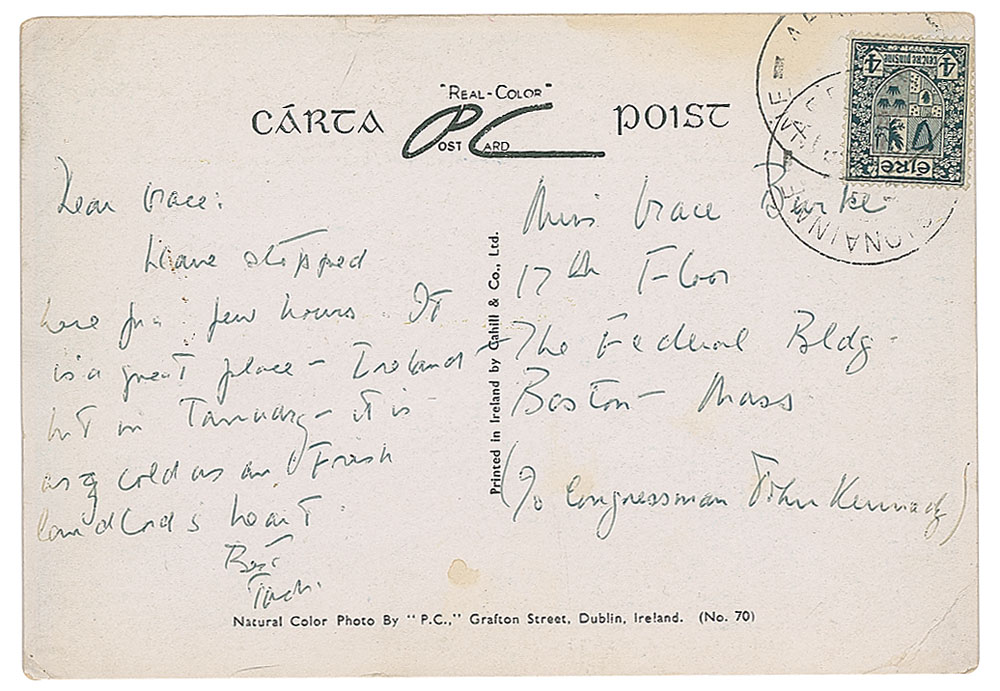 "REAL-COLOR"
CÁRTA PC POIST
POST CARD
4 4
ceitre pingine
éire
Dear Grace:
Have stopped
here for few hours. It
is a great place – Ireland –
but in January – it is
as cold as an Irish
landlord's heart.
Best
Jack.
Printed in Ireland by Cahill & Co., Ltd.
Miss Grace Burke
17th Floor
The Federal Bldg –
Boston – Mass
(c/o Congressman John Kennedy)
Natural Color Photo By "P.C.," Grafton Street, Dublin, Ireland. (No. 70)